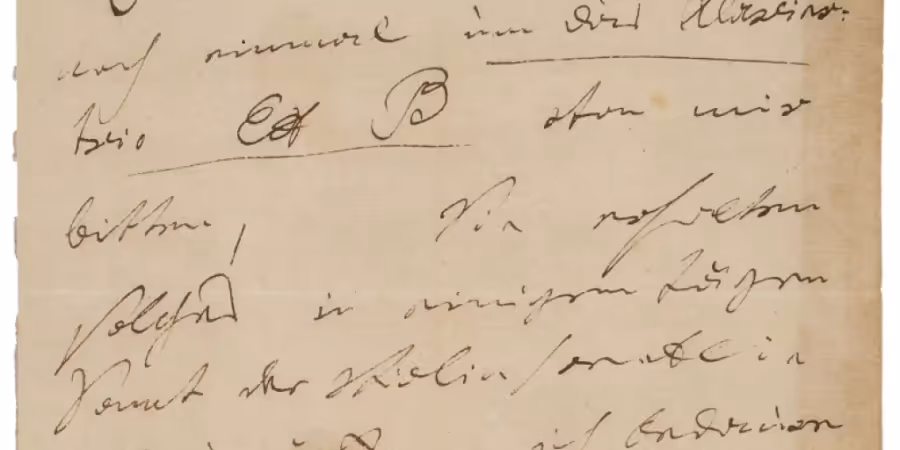 noch einmal um das Clavier-
trio Ex B von mir
bitten, Sie erhalten
Solches in einigen Tägen
Samt der Violin Sonate in
ich bedaure